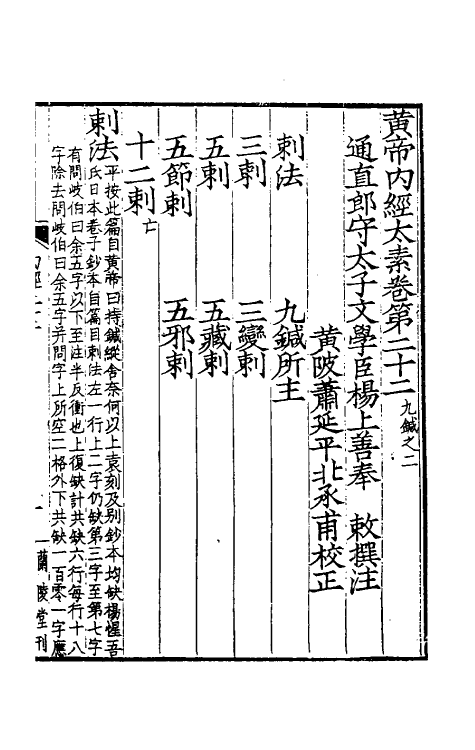 黄帝内經太素卷第二十二九鍼之二
通直郎守太子文學臣楊上善奉　敕撰注
黄陂蕭延平北承甫校正
刺法　九鍼所主
三刺　三變刺
五刺　五藏刺
五節刺　五邪刺
十二刺亡
刺法平按此篇目黄帝曰持鍼縱舍奈何以上袁刻及别鈔本均缺楊惺吾
氏日本卷子鈔本自篇目刺法左一行上二字仍缺第三字至第七字
有問岐伯曰余五字以下至註半反衝也上復缺計共缺六行每行十八
字除去問岐伯曰余五字并問字上所空二格外下共缺一百零一字應
蘭陵堂刊